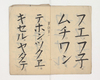 フエフ子
ムチワン
テホンツクヱ
キセルヤタテ